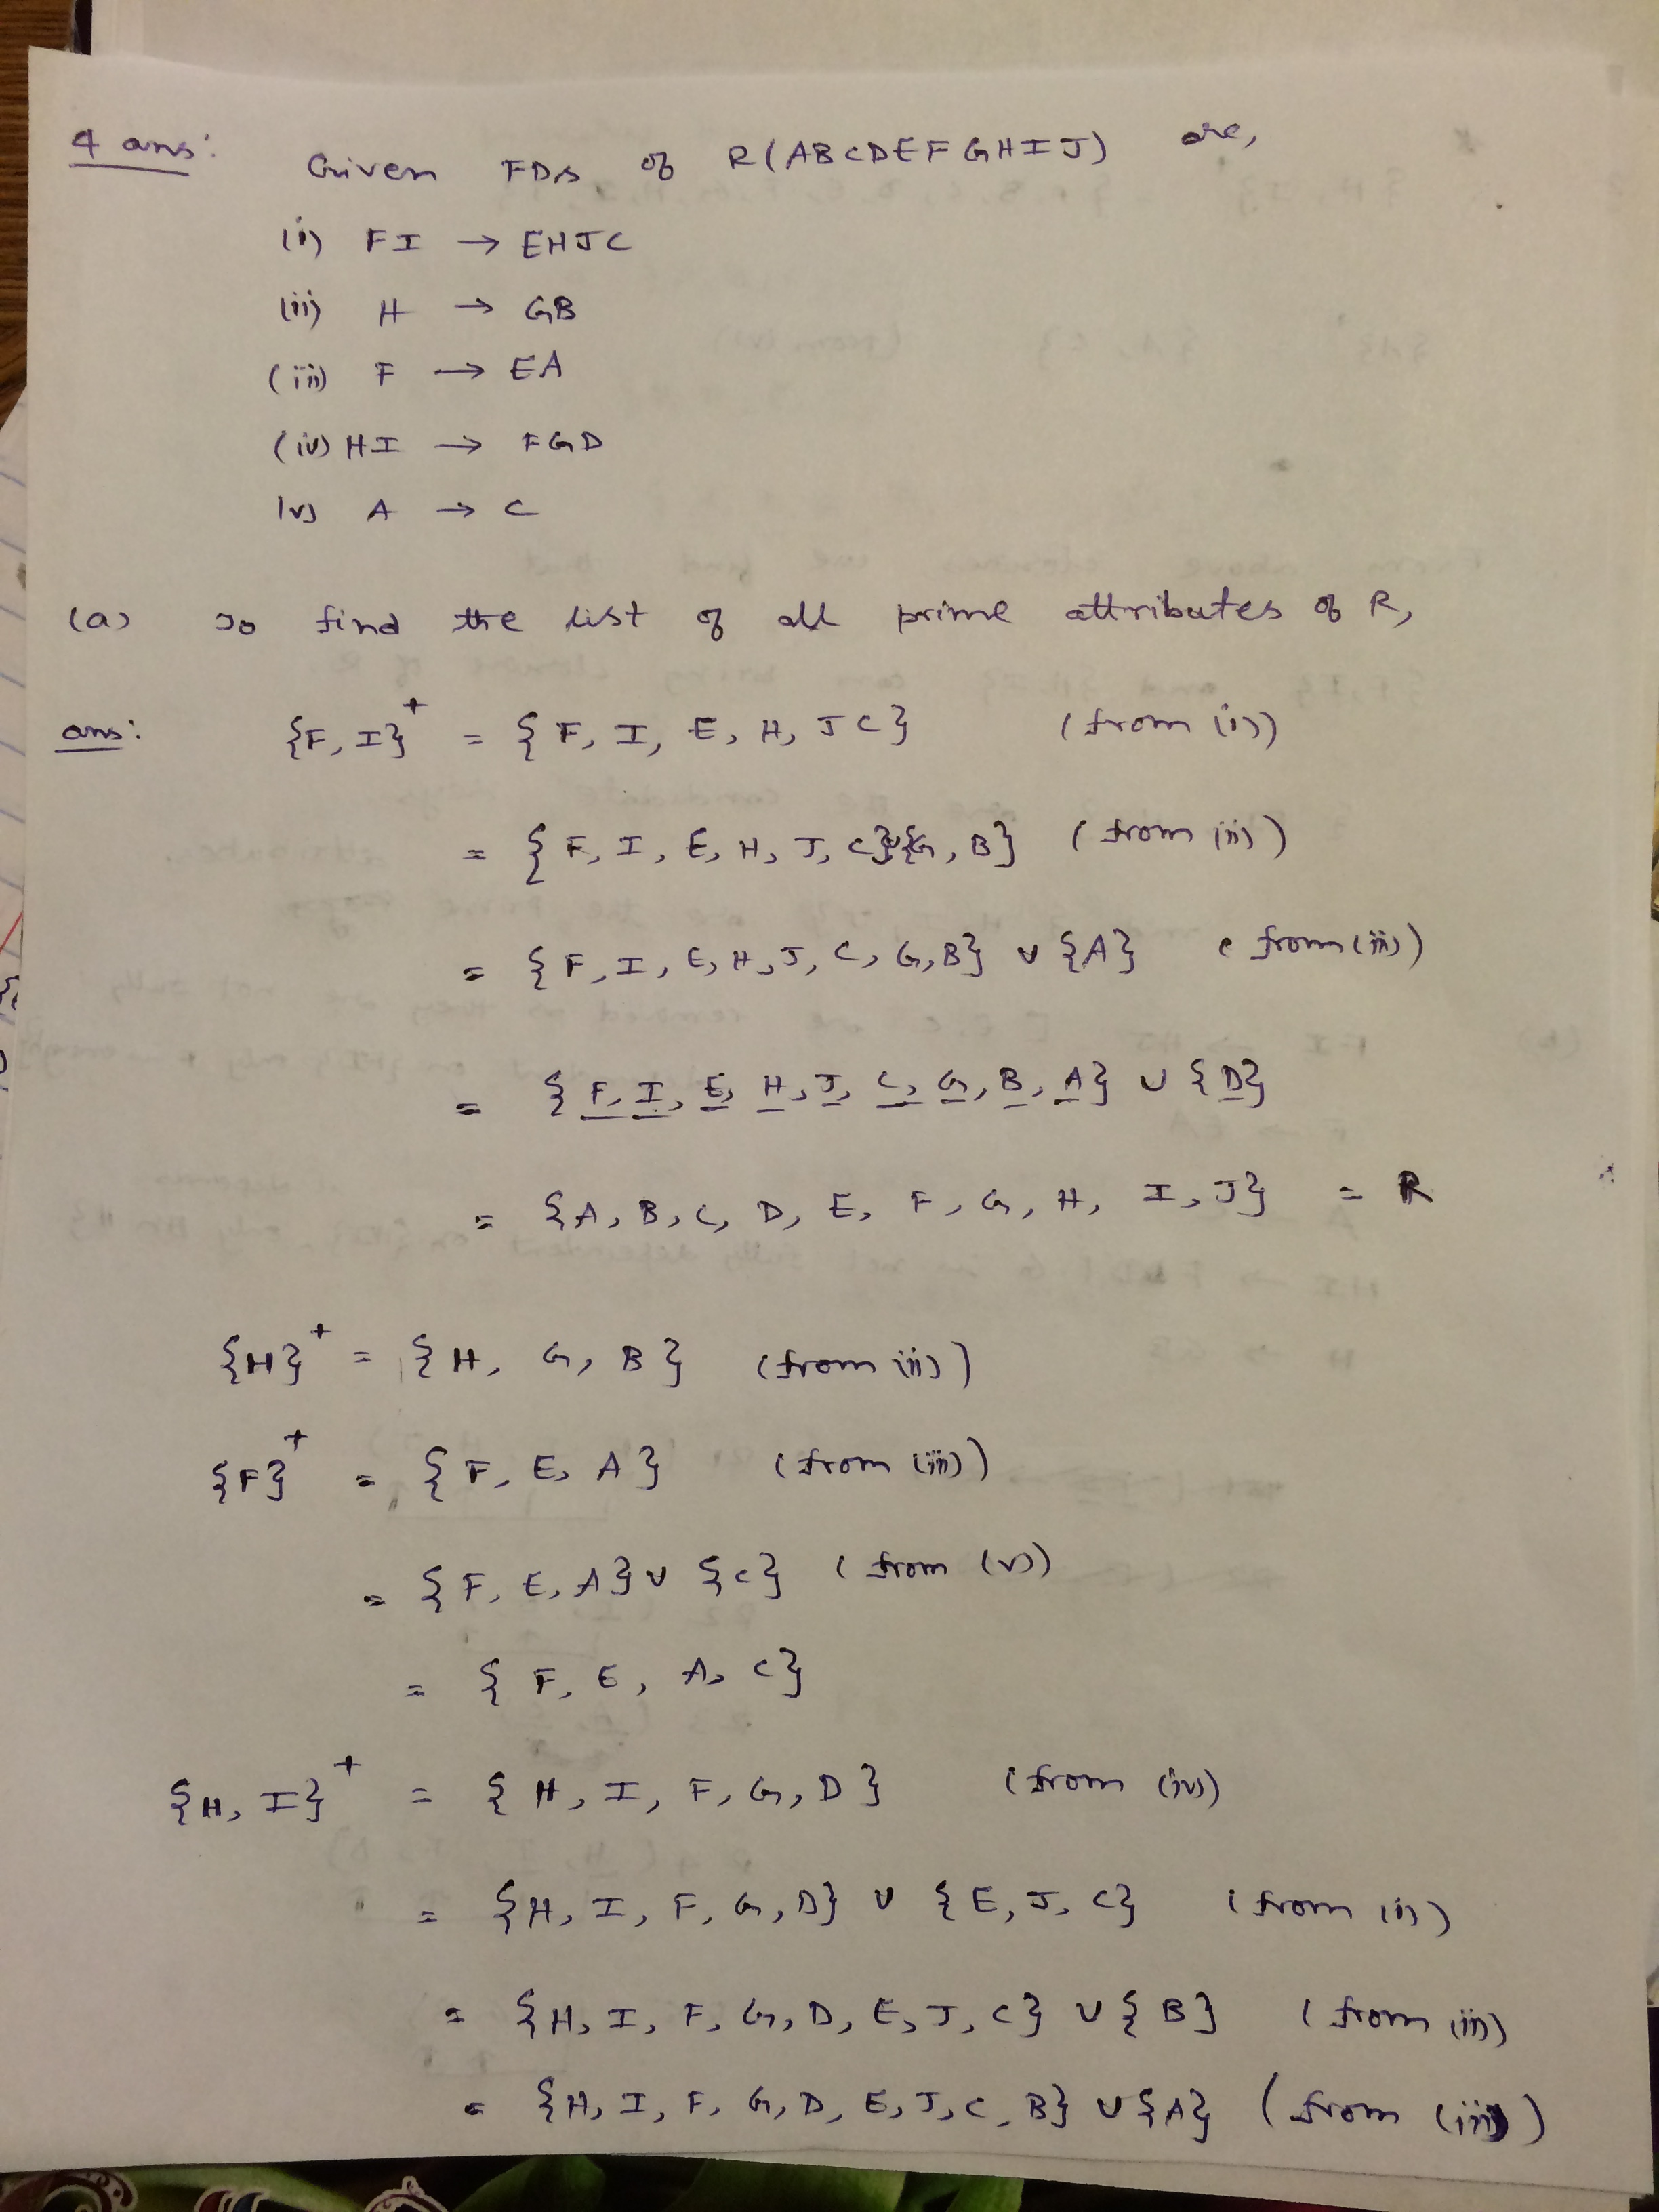 4 ans: Given FDs of R(ABCDEFGHIJ) are,
(i) FI → EHJC
(ii) H → GB
(iii) F → EA
(iv) HI → FGD
(v) A → C
(a) To find the list of all prime attributes of R,
ans: {F, I}⁺ = {F, I, E, H, J C} (from (i))
= {F, I, E, H, J, C}∪{G, B} (from (ii))
= {F, I, E, H, J, C, G, B} ∪ {A} (from (iii))
= {F, I, E, H, J, C, G, B, A} ∪ {D}
= {A, B, C, D, E, F, G, H, I, J} = R
{H}⁺ = {H, G, B} (from (ii))
{F}⁺ = {F, E, A} (from (iii))
= {F, E, A} ∪ {C} (from (v))
= {F, E, A, C}
{H, I}⁺ = {H, I, F, G, D} (from (iv))
= {H, I, F, G, D} ∪ {E, J, C} (from (i))
= {H, I, F, G, D, E, J, C} ∪ {B} (from (ii))
= {H, I, F, G, D, E, J, C, B} ∪ {A} (from (iii))